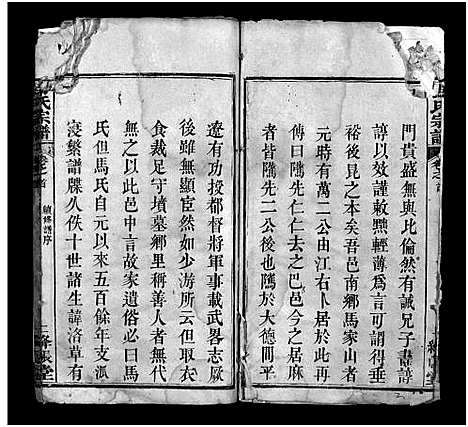 門貴盛無與比倫然有誡兄子書諄
諄以效謹敕黙輕薄爲言可謂得垂
裕後昆之本矣吾邑南鄉馬家山當
元時有萬二公由江右卜居於此與
偕者隲先仁仁去之巴邑今之居麻
者皆隲先二公後也隲於大德間平
遼有功授都督將軍事載武畧志厥
後雖無顯宦然如少游所云但取衣
食裁足守墳墓鄉里稱善人者無代
無之以此邑中言故家遺俗必曰馬
氏但馬氏自元以來五百餘年支派
寖繁譜牒久佚十世諸生諱洛草有
氏宗譜
卷之首
續修譜序
絳帳堂
氏宗譜
卷之首
堂